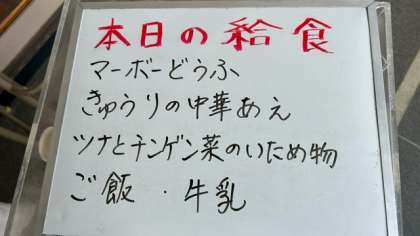 本日の給食
マーボーどうふ
きゅうりの中華あえ
ツナとチンゲン菜のいため物
ご飯・牛乳